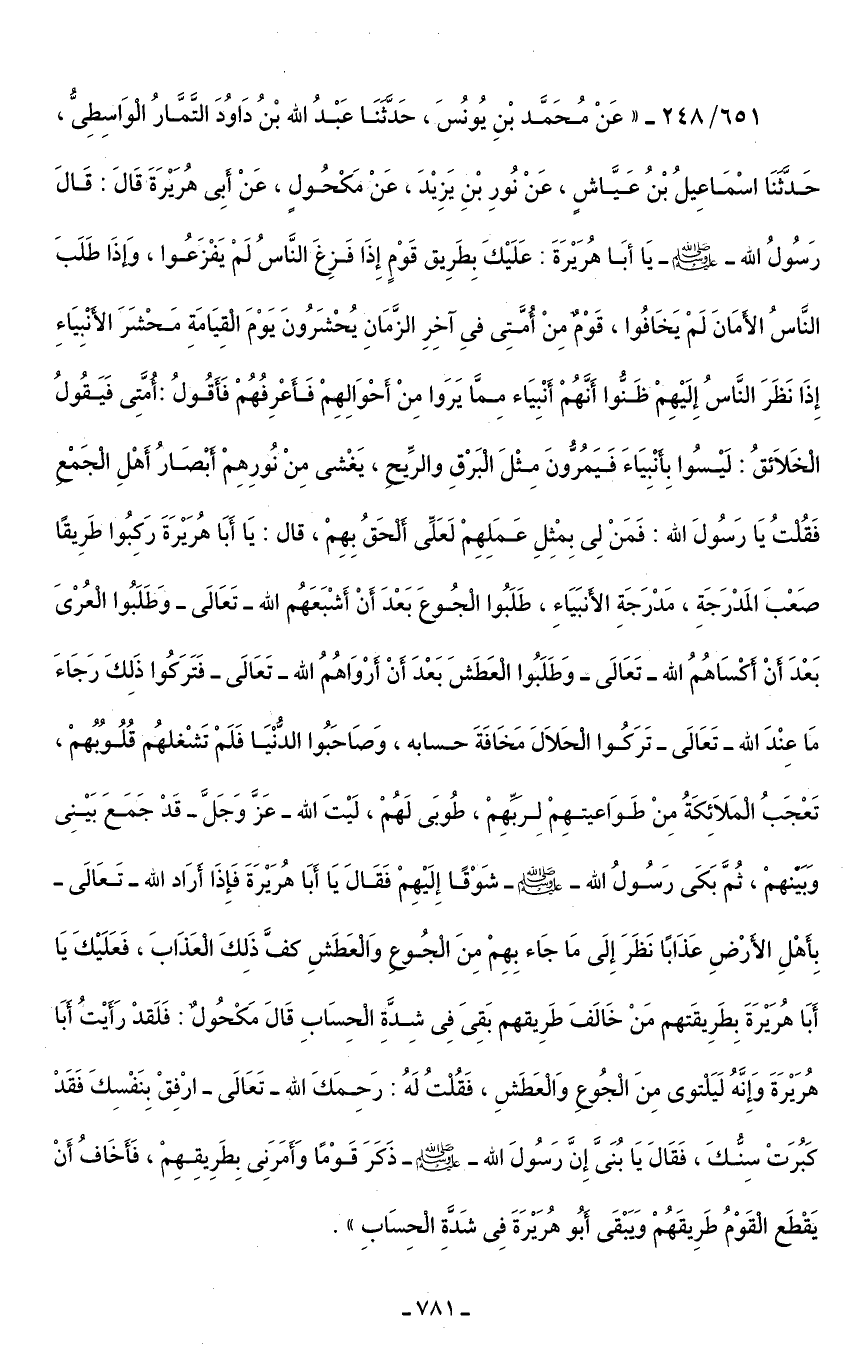 ٢٤٨/٦٥١ ـ « عَنْ مُحَمَّد بْنِ يُونُسَ ، حَدَّثَنَا عَبْدُ الله بْنُ دَاوُدَ التَّمَّارُ الْوَاسِطِىُّ ،
حَدَّثَنَا اسْمَاعِيلُ بْنُ عَيَّاشٍ ، عَنْ نُورِ بْنِ يَزِيْدَ ، عَنْ مَكْحُولٍ ، عَنْ أَبِى هُرَيْرَةَ قَالَ : قَالَ
رَسُولُ الله ـ ﷺ ـ يَا أبَا هُرَيْرَةَ : عَلَيْكَ بِطَرِيق قَوْمٍ إِذَا فَزِغَ النَّاسُ لَمْ يَفْزَعُوا ، وَإِذَا طَلَبَ
النَّاسُ الأَمَانَ لَمْ يَخَافُوا ، قَوْمٌ مِنْ أُمَّتِى فِى آخِرِ الزَّمَانِ يُحْشَرُونَ يَوْمَ الْقِيَامَةِ مَحْشَرَ الأَنْبِيَاءِ
إِذَا نَظَرَ النَّاسُ إِلَيْهِمْ ظَنُّوا أَنَّهُمْ أَنْبِيَاء مِمَّا يَرَوا مِنْ أَحْوَالِهِمْ فَأَعْرِفُهُمْ فَأَقُولُ :أُمَّتِى فَيَقُولُ
الْخَلَائِقُ : لَيْسُوا بِأَنْبِيَاءَ فَيَمُرُّونَ مِثْلَ الْبَرْقِ والرِّيحِ ، يَغْشى مِنْ نُورِهِمْ أَبْصَارُ أَهْلِ الْجَمْعِ
فَقُلْتُ يَا رَسُولَ الله : فَمَنْ لِى بِمْثلِ عَمَلِهِمْ لَعَلِّى أَلْحَقُ بِهِمْ ، قال : يَا أَبَا هُرَيْرَةَ رَكِبُوا طَرِيقًا
صَعْبَ الْمَدْرَجَةِ ، مَدْرَجَةِ الأنْبِيَاءِ ، طَلَبُوا الْجُوعَ بَعْدَ أَنْ أشْبَعَهُم الله ـ تَعَالَى ـ وَطَلَبُوا الْعُرْىَ
بَعْدَ أَنْ أَكْسَاهُمُ الله ـ تَعَالَى ـ وَطَلَبُوا الْعَطَشَ بَعْدَ أَنْ أَرْوَاهُمُ الله ـ تَعَالَى ـ فَتَرَكُوا ذَلِكَ رَجَاءَ
مَا عِنْدَ الله ـ تَعَالَى ـ تَرَكُوا الْحَلَالَ مَخَافَةَ حِسَابه ، وَصَاحَبُوا الدُّنْيَا فَلَمْ تَشْغلهُم قُلُوبُهمْ ،
تَعْجَبُ الْمَلَائِكَةُ مِنْ طَوَاعيتهِمْ لِرَبِّهِمْ ، طُوبَى لَهُمْ ، لَيْتَ الله ـ عَزَّ وَجَلَّ ـ قَدْ جَمَعَ بَيْنِى
وَبَيْنهمْ ، ثُمَّ بَكَى رَسُولُ الله ـ ﷺ ـ شَوْقًا إِلَيْهِمْ فَقَالَ يَا أَبَا هُرَيْرَةَ فَإِذَا أَرَاد الله ـ تَعَالَى ـ
بِأَهْلِ الأَرْضِ عَذَابًا نَظَرَ إِلَى مَا جَاء بِهِمْ مِنَ الْجُوعِ وَالْعَطَشِ كَفَّ ذَلِكَ الْعَذَابَ ، فَعَلَيْكَ يَا
أَبَا هُرَيْرَةَ بِطَرِيقَتهم مَنْ خَالَفَ طَرِيقهم بَقِىَ فِى شِدَّةِ الْحِسَابِ قَالَ مَكْحُولٌ : فَلَقدْ رَأَيْتُ أَبَا
هُرَيْرَةَ وَإِنَّهُ لَيَلْتوى مِنَ الْجُوعِ وَالْعَطَشِ ، فَقُلْتُ لَهُ : رَحِمَكَ الله ـ تَعَالَى ـ ارْفِقْ بِنَفْسِكَ فَقَدْ
كَبُرَتْ سِنُّكَ ، فَقَالَ يَا بُنَىَّ إِنَّ رَسُولَ الله ـ ﷺ ـ ذَكَرَ قَوْمًا وَأَمَرَنِى بِطَرِيقِهِمْ ، فَأَخَافُ أَنْ
يَقْطَعِ الْقَوْمُ طَرِيقَهُمْ وَيَبْقَى أَبُو هُرَيْرَةَ فِى شدَّةِ الْحِسَابِ » .
ـ ٧٨١ ـ